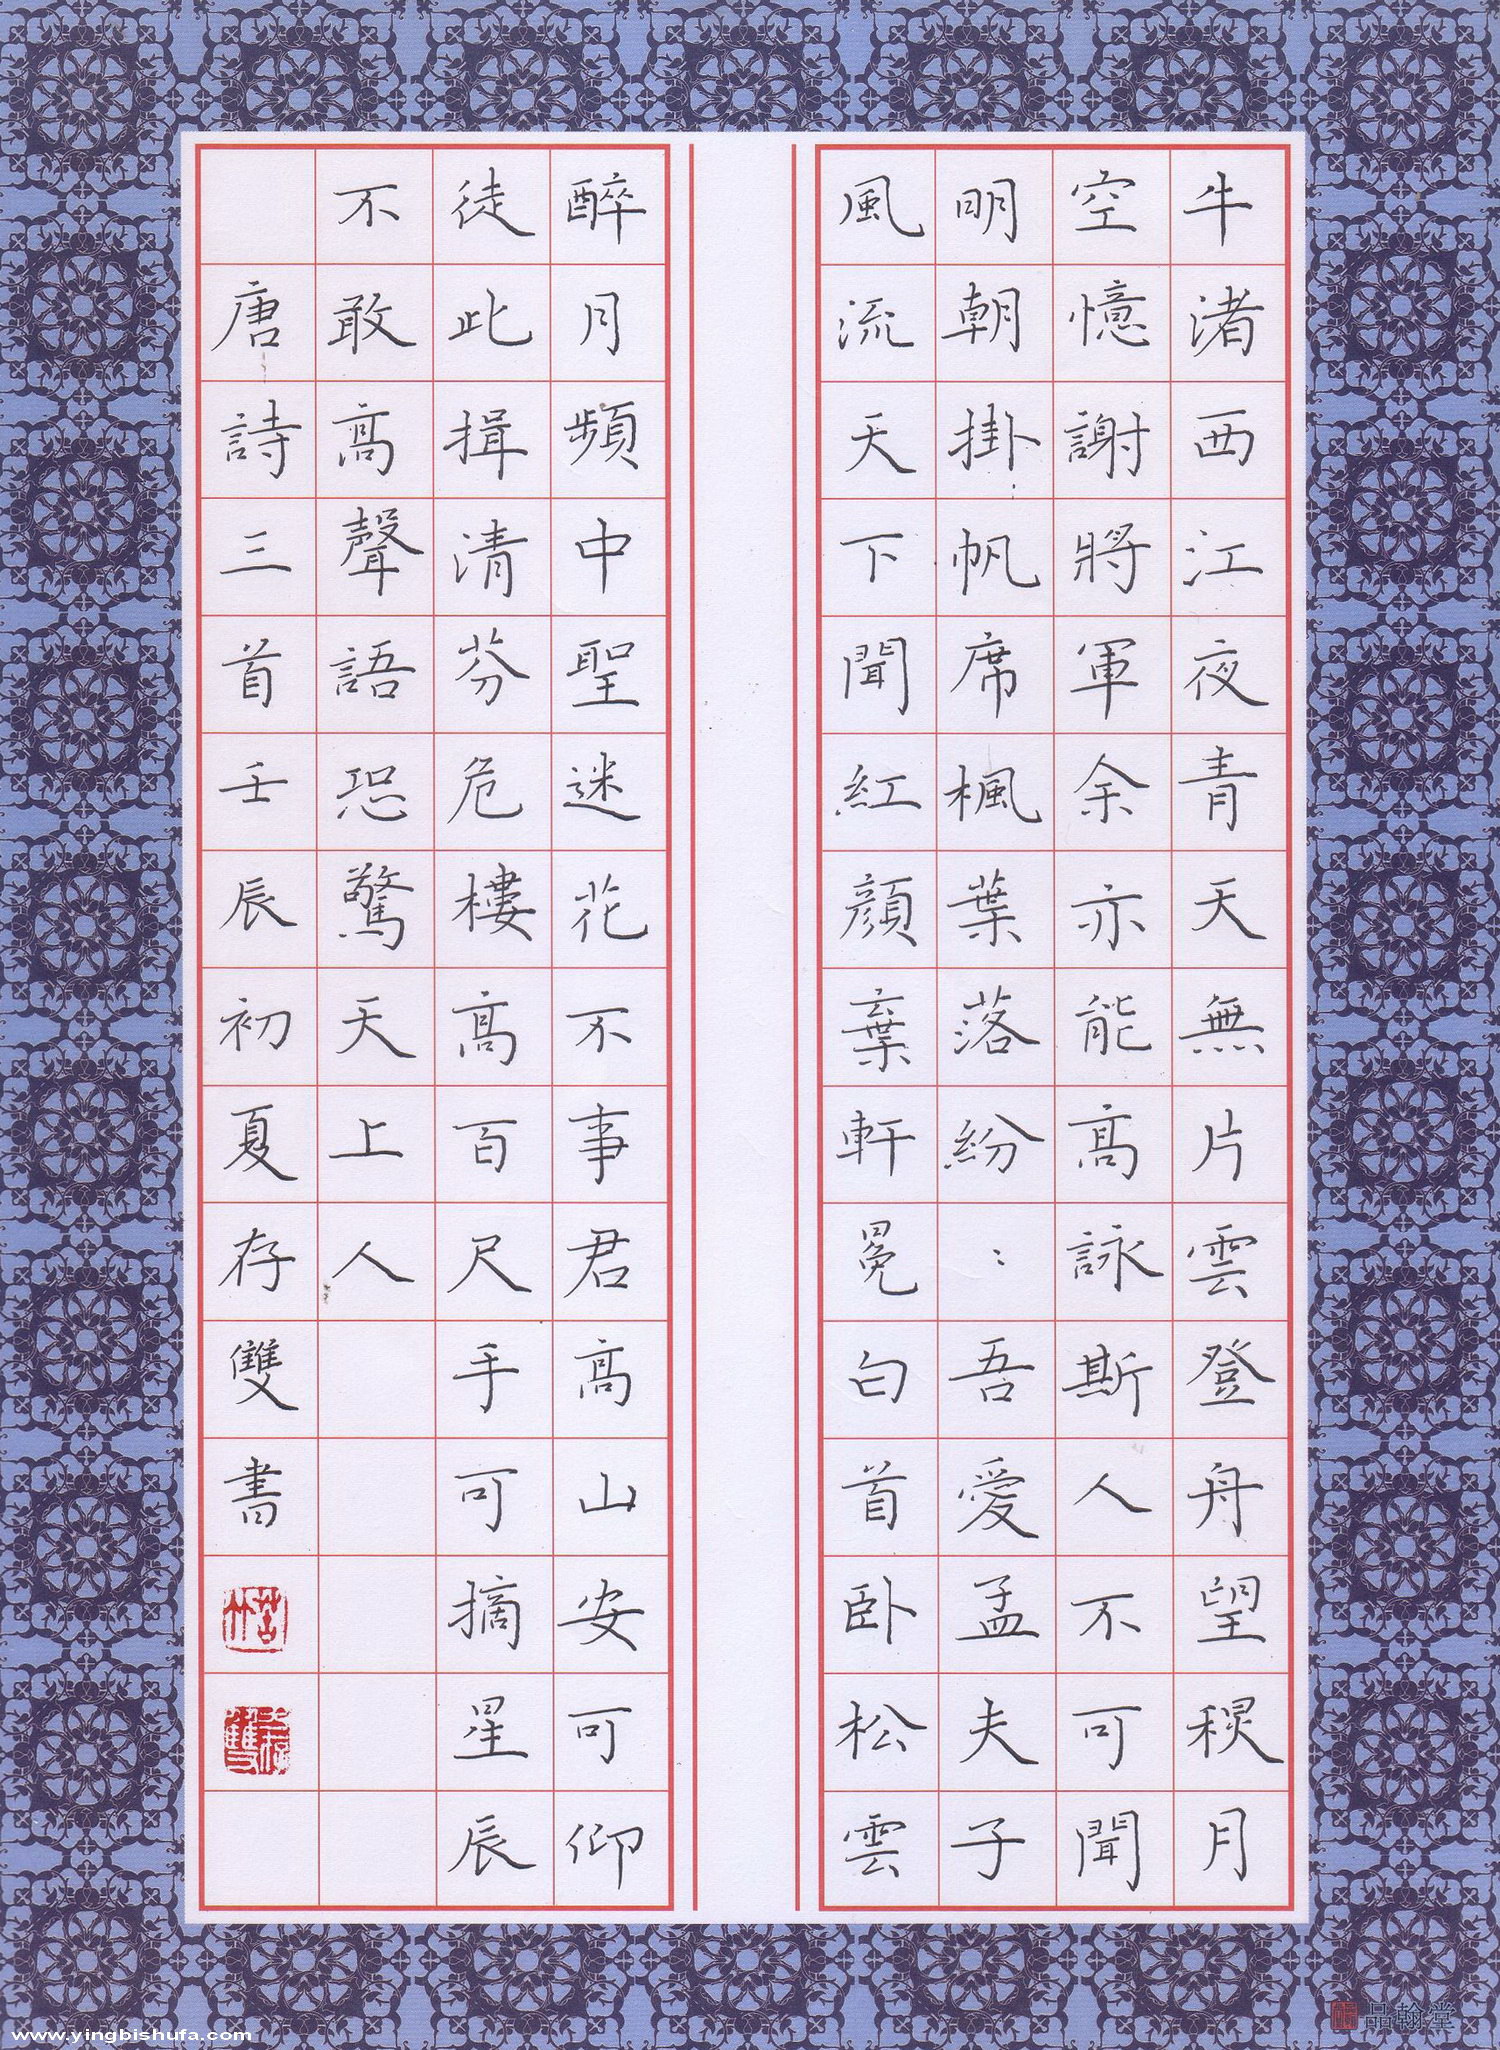 牛渚西江夜青天無片雲登舟望秋月
空憶謝將軍余亦能高詠斯人不可聞
明朝掛帆席楓葉落紛〻吾愛孟夫子
風流天下聞紅顏棄軒冕白首卧松雲
醉月頻中聖迷花不事君高山安可仰
徒此揖清芬危樓高百尺手可摘星辰
不敢高聲語恐驚天上人
唐詩三首壬辰初夏存雙書
www.yingbishufa.com
品翰堂